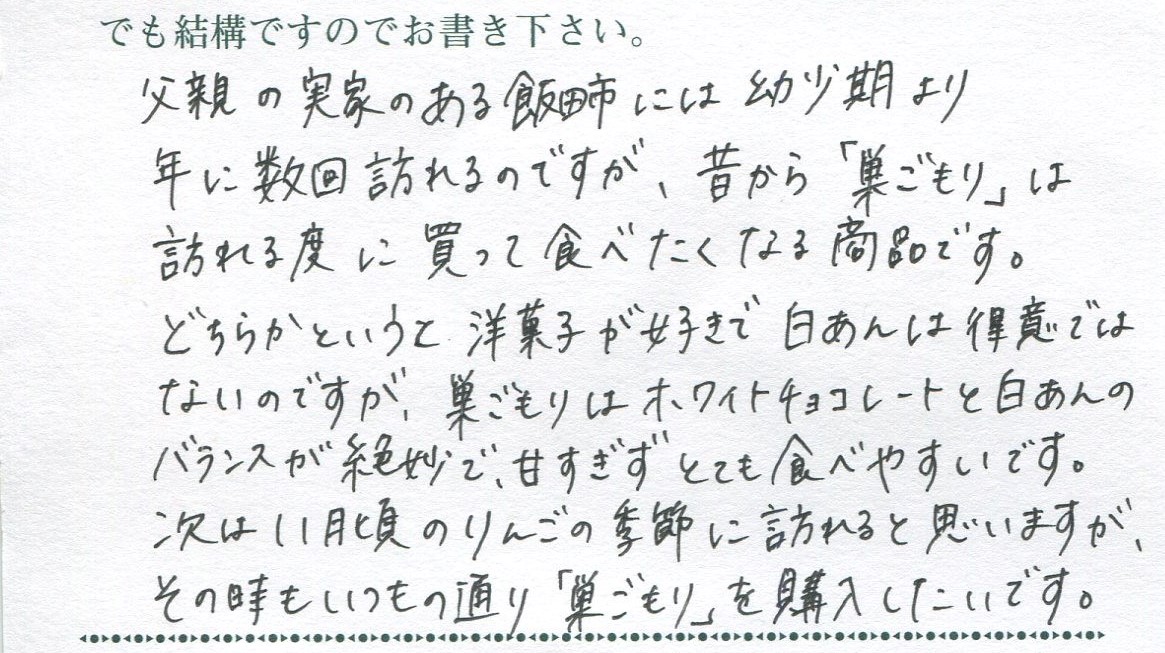 でも結構ですのでお書き下さい。
父親の実家のある飯田市には幼少期より
年に数回訪れるのですが、昔から「巣ごもり」は
訪れる度に買って食べたくなる商品です。
どちらかというと洋菓子が好きで白あんは得意では
ないのですが、巣ごもりはホワイトチョコレートと白あんの
バランスが絶妙で、甘すぎずとても食べやすいです。
次は11月頃のりんごの季節に訪れると思いますが、
その時もいつもの通り「巣ごもり」を購入したいです。